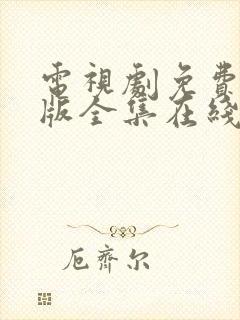 電視劇免費
版全集在綫
厄齊尔